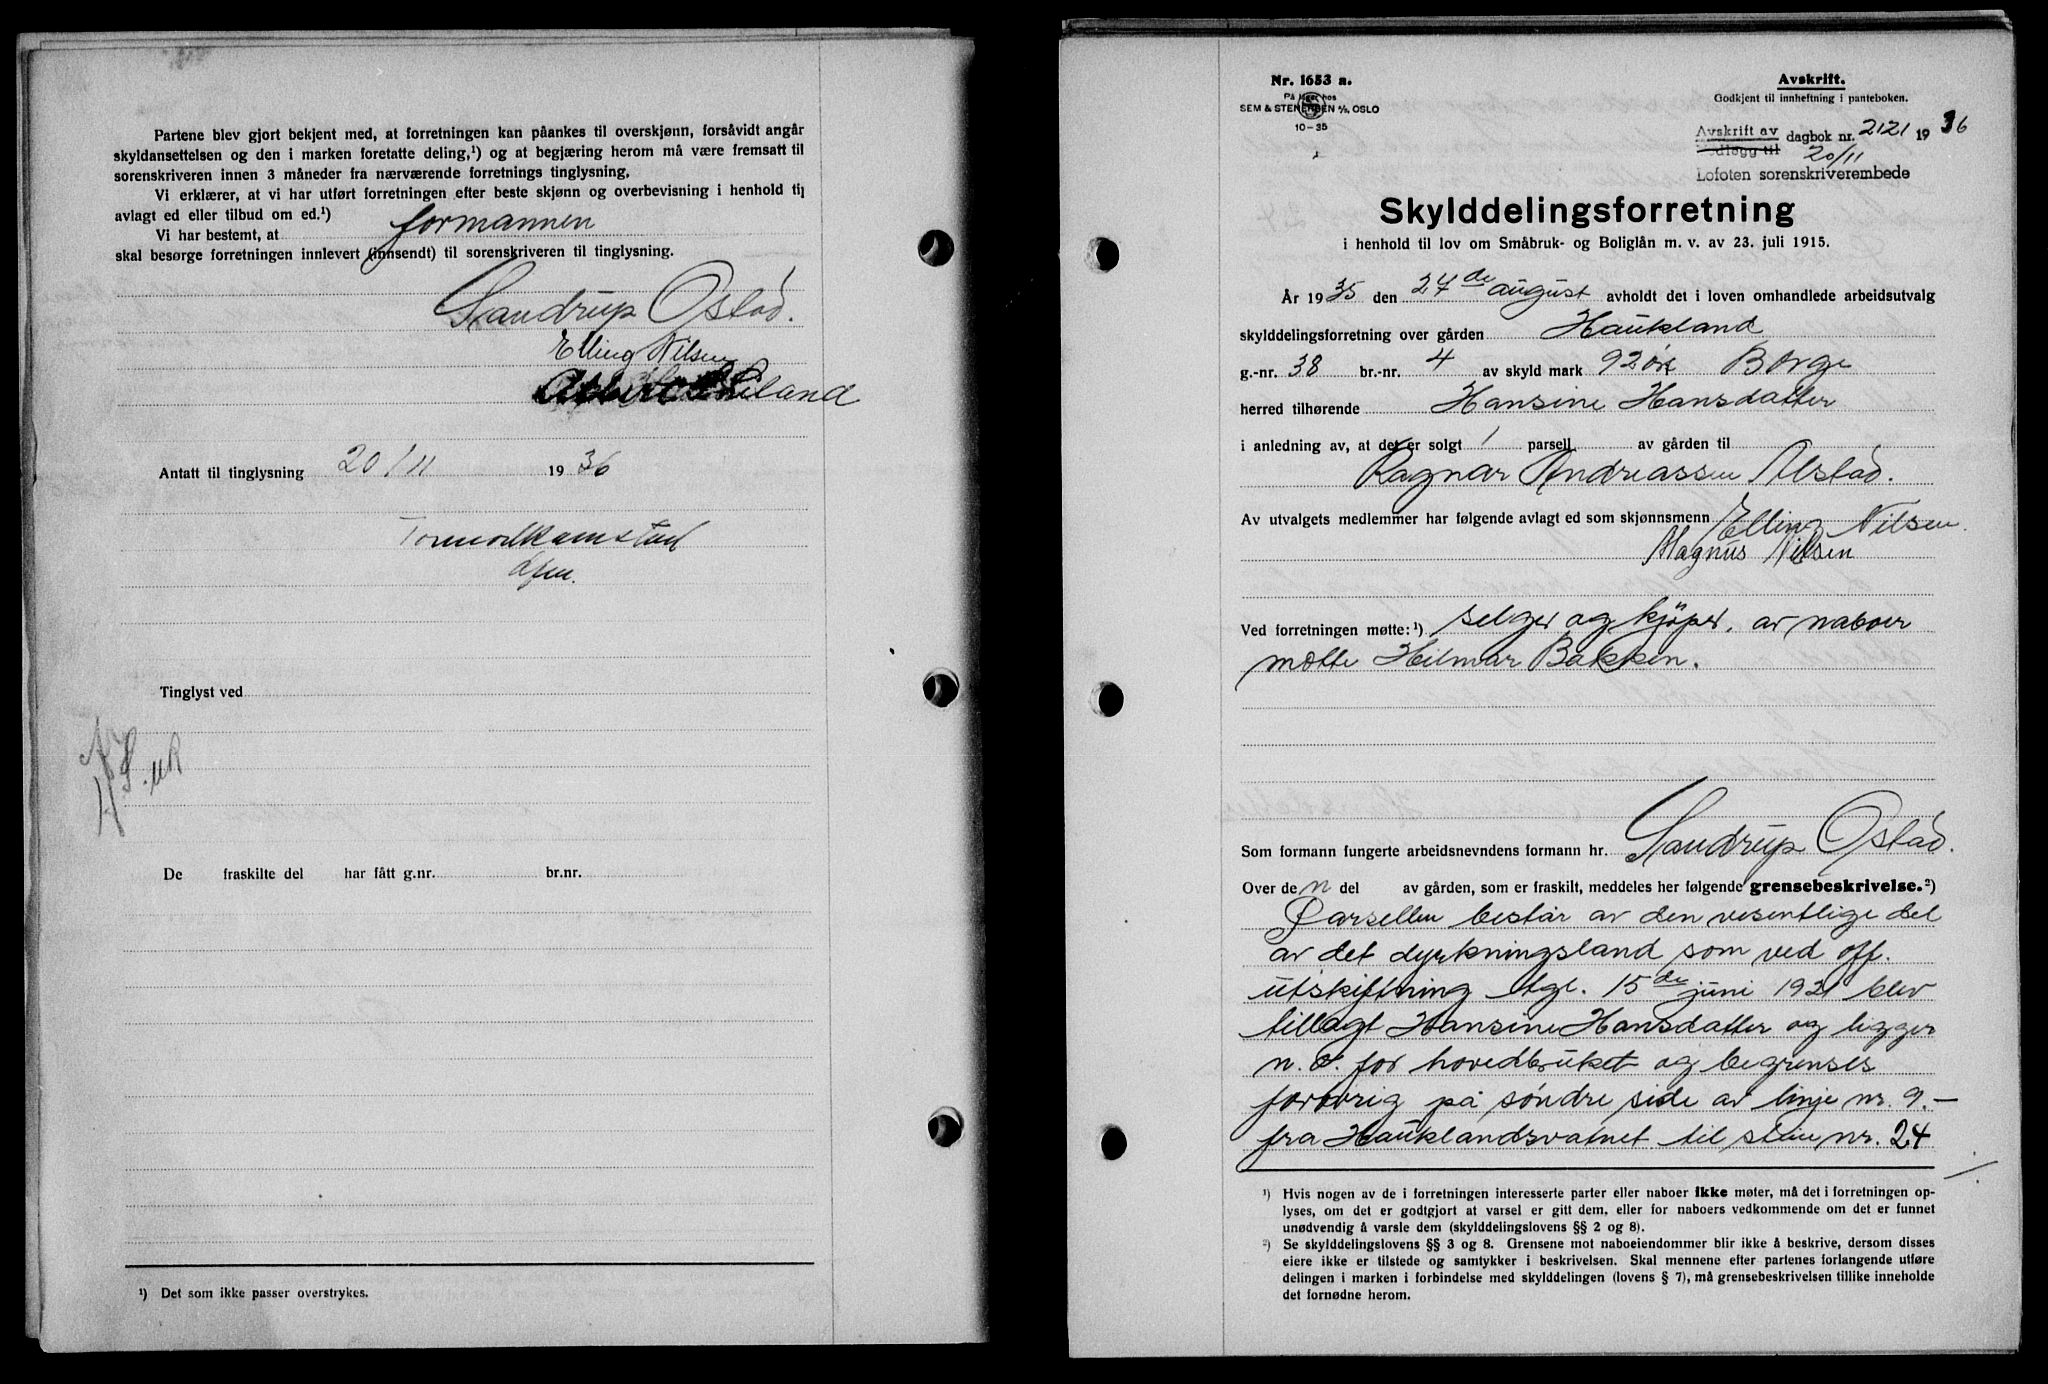 Partene blev gjort bekjent med, at forretningen kan påankes til overskjønn, forsåvidt angår
skyldansettelsen og den i marken foretatte deling,¹) og at begjæring herom må være fremsatt til
sorenskriveren innen 3 måneder fra nærværende forretnings tinglysning.
Vi erklærer, at vi har utført forretningen efter beste skjønn og overbevisning i henhold til
avlagt ed eller tilbud om ed.¹)
Vi har bestemt, at formannen
skal besørge forretningen innlevert (innsendt) til sorenskriveren til tinglysning.
Sandrup Ostad.
Elling Nilsen
Antatt til tinglysning 20/11 1936
Tinglyst ved
De fraskilte del har fått g.nr. br.nr.
¹) Det som ikke passer overstrykes.
Nr. 1653 a.
På lager hos
SEM & STENERSEN A/S, OSLO
10-35
Avskrift.
Godkjent til innheftning i panteboken.
Avskrift av
Vedlegg til
dagbok nr. 2121 1936
20/11
Lofoten sorenskriverembede
Skylddelingsforretning
i henhold til lov om Småbruk- og Boliglån m. v. av 23. juli 1915.
År 1935 den 24de august avholdt det i loven omhandlede arbeidsutvalg
skylddelingsforretning over gården Haukland
g.-nr. 38 br.-nr. 4 av skyld mark 92 øre Borge
herred tilhørende Hansine Hansdatter
i anledning av, at det er solgt 1 parsell av gården til
Ragnar Andreassen Alstad.
Av utvalgets medlemmer har følgende avlagt ed som skjønnsmenn Elling Nilsen
Magnus Nilsen
Ved forretningen møtte:¹) selger og kjøper. av naboer
møtte Hilmar Bakken.
Som formann fungerte arbeidsnevndens formann hr. Sandrup Ostad.
Over den del av gården, som er fraskilt, meddeles her følgende grensebeskrivelse.²)
Parsellen består av den vesentlige del
av det dyrkningsland som ved off.
utskiftning tgl. 15de juni 1921 blev
tillagt Hansine Hansdatter og ligger
n. ø. for hovedbruket og begrenses
forøvrig på søndre side av linje nr. 9.-
fra Hauklandsvatnet til sten nr. 24
¹) Hvis nogen av de i forretningen interesserte parter eller naboer ikke møter, må det i forretningen op-
lyses, om det er godtgjort at varsel er gitt dem, eller for naboers vedkommende om det er funnet
unødvendig å varsle dem (skylddelingslovens §§ 2 og 8).
²) Se skylddelingslovens §§ 3 og 8. Grensene mot naboeiendommer blir ikke å beskrive, dersom disses
eiere ikke er tilstede og samtykker i beskrivelsen. Skal mennene efter partenes forlangende utføre
delingen i marken i forbindelse med skylddelingen (lovens § 7), må grensebeskrivelsen tillike inneholde
det fornødne herom.